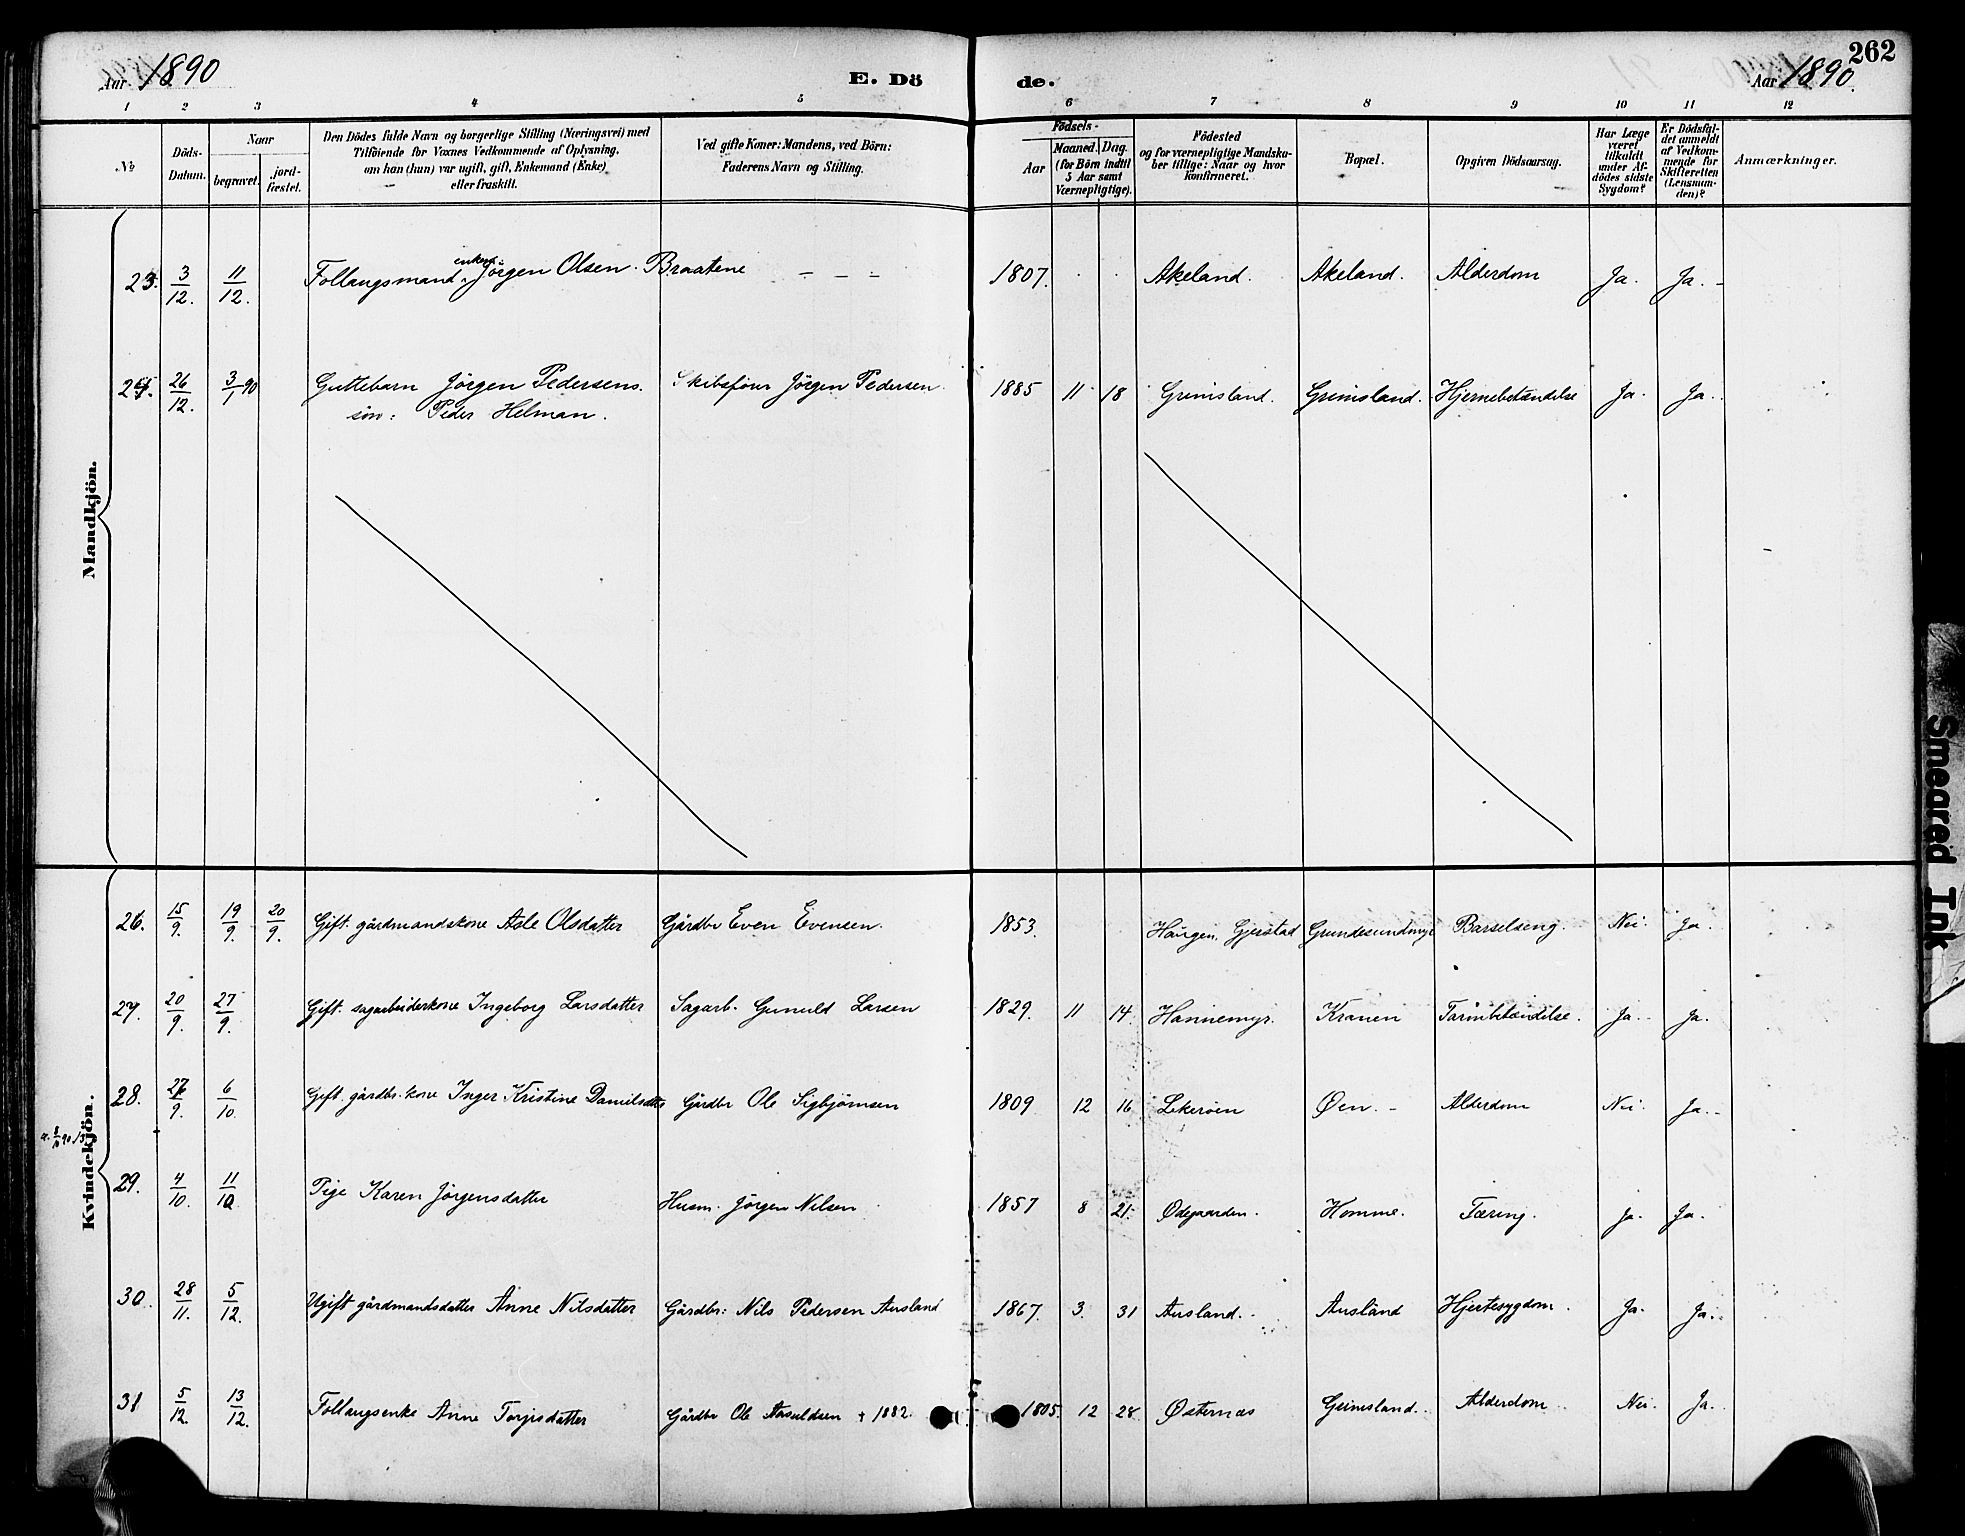 Aar 1890 E. Döde. Aar 1890. 262
1 2 3 4 5 6 7 8 9 10 11 12
No
Döds-Datum.
Naar begravet. jord-fæstet.
Den Dödes fulde Navn og borgerlige Stilling (Næringsvei) med
Tilföiende for Voxnes Vedkommende af Oplysning,
om han (hun) var ugift, gift, Enkemand (Enke)
eller fraskilt.
Ved gifte Koner: Mandens, ved Börn:
Faderens Navn og Stilling.
Födsels-
Aar Maaned. Dag.
(for Börn indtil
5 Aar samt
Værnepligtige).
Födested
og for værnepligtige Mandska-
ber tillige: Naar og hvor
konfirmeret.
Bopæl.
Opgiven Dödsaarsag.
Har Læge
været
tilkaldt
under Af-
dödes sidste
Sygdom?
Er Dödsfal-
det anmeldt
af Vedkom-
mende for
Skifteretten
(Lensman-
den)?
Anmærkninger.
Mandkjön.
3/12. 11/12. Follaugsmand enkem. Jörgen Olsen Braatene – – – 1807. Akeland. Akeland. Alderdom Ja. Ja.
26/12. 3/1 90 Guttebarn Jörgen Pedersens Skibsförer Jörgen Pedersen. 1885 11 18 Grimsland. Grimsland. Hjernebetændelse Ja. Ja.
sön: Peder Helman.
Kvindekjön.
26. 15/9. 19/9. 20/9. Gift. gårdmandskone Asle Olsdatter Gårdbr Even Evensen. 1853. Haugen, Gjerstad Grundesundmyr Barselseng. Nei. Ja.
27. 20/9. 27/9. Gift. sagarbeiderkone Ingeborg Larsdatter Sagarb. Gunuld Larsen 1829. 11 14. Hannemyr. Kranen Tarmbetændelse. Ja. Ja.
28. 27/9. 6/10. Gift. gårdbr. kone Inger Kristine Danielsdtr Gårdbr Ole Sigbjörnsen 1809 12 16 Lekeröen Øen. Alderdom Nei. Ja.
29. 4/10. 11/10 Pige Karen Jörgensdatter Husm. Jörgen Nilsen 1857 8 21. Ødegaarden. Homme. Tæring. Ja. Ja.
30. 28/11. 5/12. Ugift gårdmandsdatter Anne Nilsdatter Gårdbr: Nils Pedersen Ausland 1867. 3. 31 Ausland. Ausland Hjertesygdom. Ja. Ja.
31 5/12. 13/12. Follaugsenke Anne Torjusdatter Gårdbr Ole Aasuldsen + 1882. 1805. 12 28 Østernæs Grimsland. Alderdom Nei. Ja.
Smeared Ink